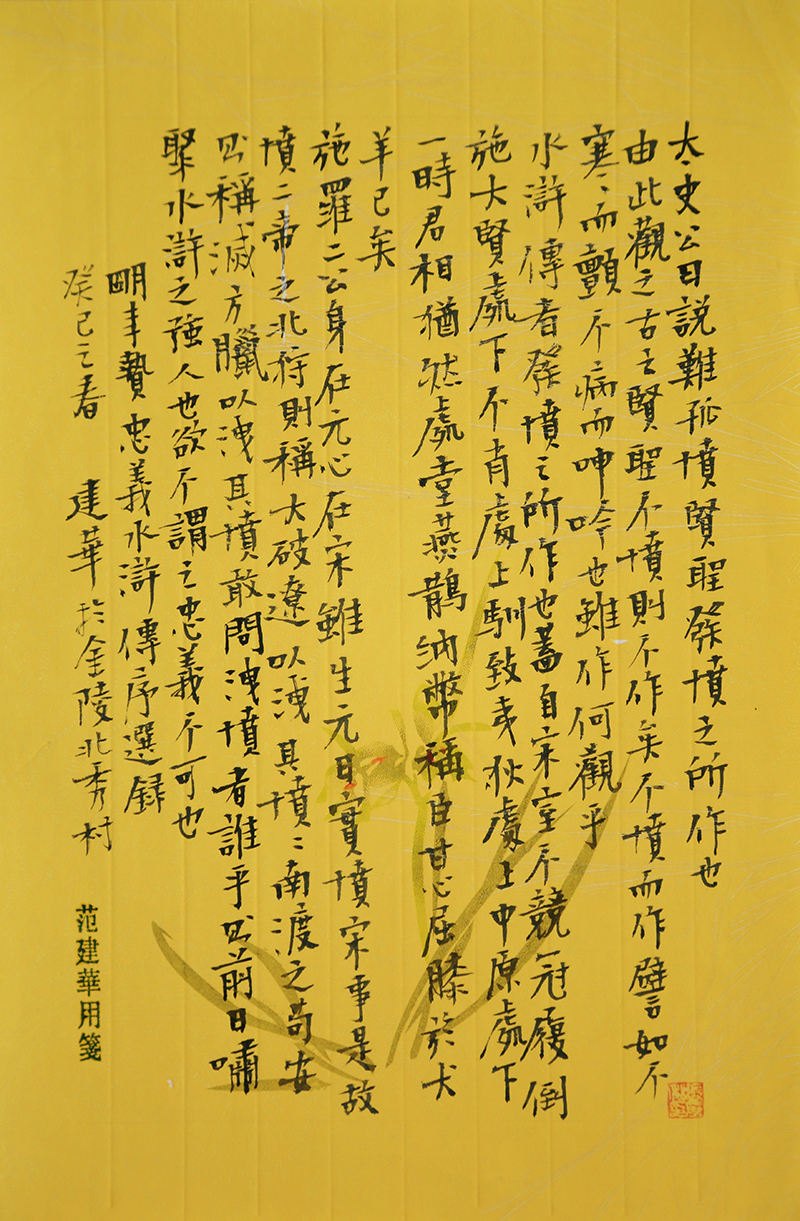 太史公曰說難孤憤賢聖發憤之所作也
由此觀之古之賢聖不憤則不作矣不憤而作譬如不
寒〻而顫不病而呻吟也雖作何觀乎
水滸傳者發憤之所作也蓋自宋室不競冠履倒
施大賢處下不肖處上馴致夷狄處上中原處下
一時君相猶然處堂燕鵲納幣稱臣甘心屈膝於犬
羊已矣
施羅二公身在元心在宋雖生元日實憤宋事是故
憤二帝之北狩則稱大破遼以洩其憤〻南渡之苟安
則稱滅方臘以洩其憤敢問洩憤者誰乎則前日嘯
聚水滸之強人也欲不謂之忠義不可也
明李贄忠義水滸傳序選錄
癸巳之春 建華於金陵北秀村
范建華用箋